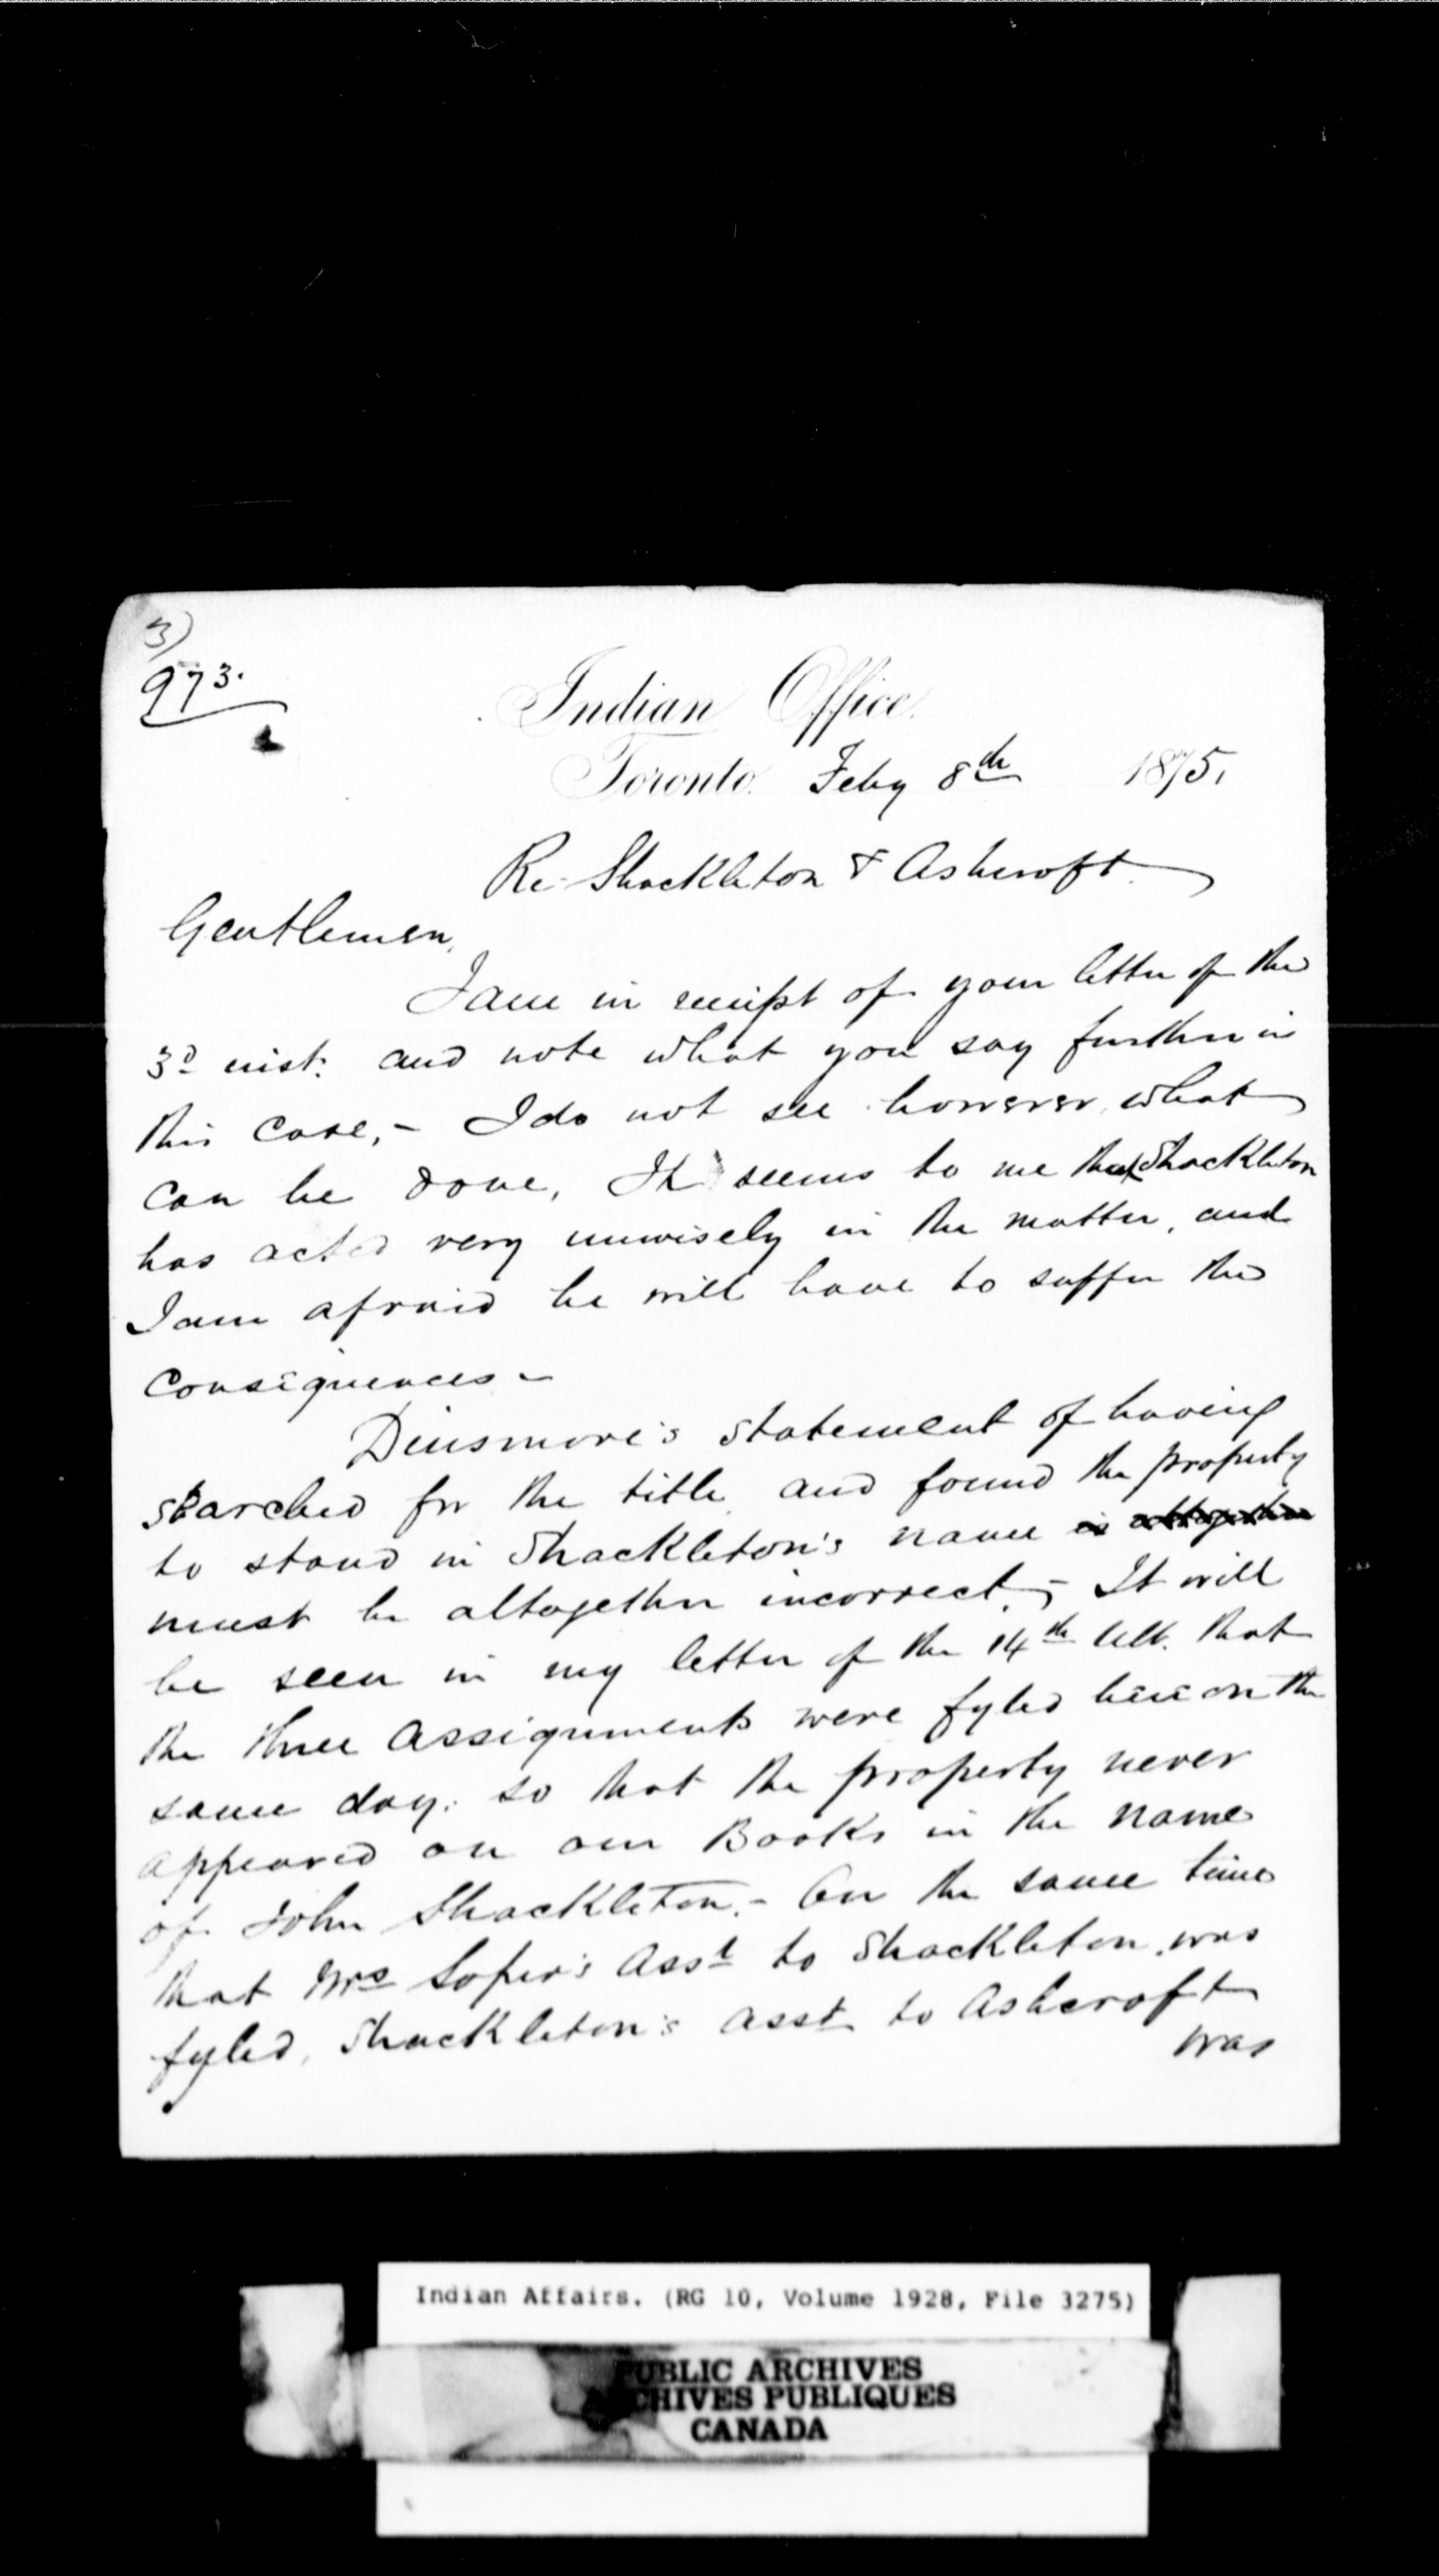 3)
973.
Indian Office.
Toronto. Feby 8th 1875,
Re Shackleton & Ashcroft.
Gentlemen,
I am in receipt of your letter of the
3d inst: and note what you say further in
this case,- I do not see however, what
can be done, It seems to me that Shackleton
has acted very unwisely in the matter, and
I am afraid he will have to suffer the
consequences -
Dinsmore's statement of having
searched for the title, and found the property
to stand in Shackleton's name is altogether
must be altogether incorrect,- It will
be seen in my letter of the 14th Ult. that
the three assignments were fyled here on the
same day: so that the property never
appeared on our Books in the name
of John Shackleton.- On the same time
that Mrs Soper's Asst to Shackleton was
fyled, Shackleton's asst to Ashcroft
was
Indian Affairs. (RG 10, Volume 1928, File 3275)
PUBLIC ARCHIVES
ARCHIVES PUBLIQUES
CANADA